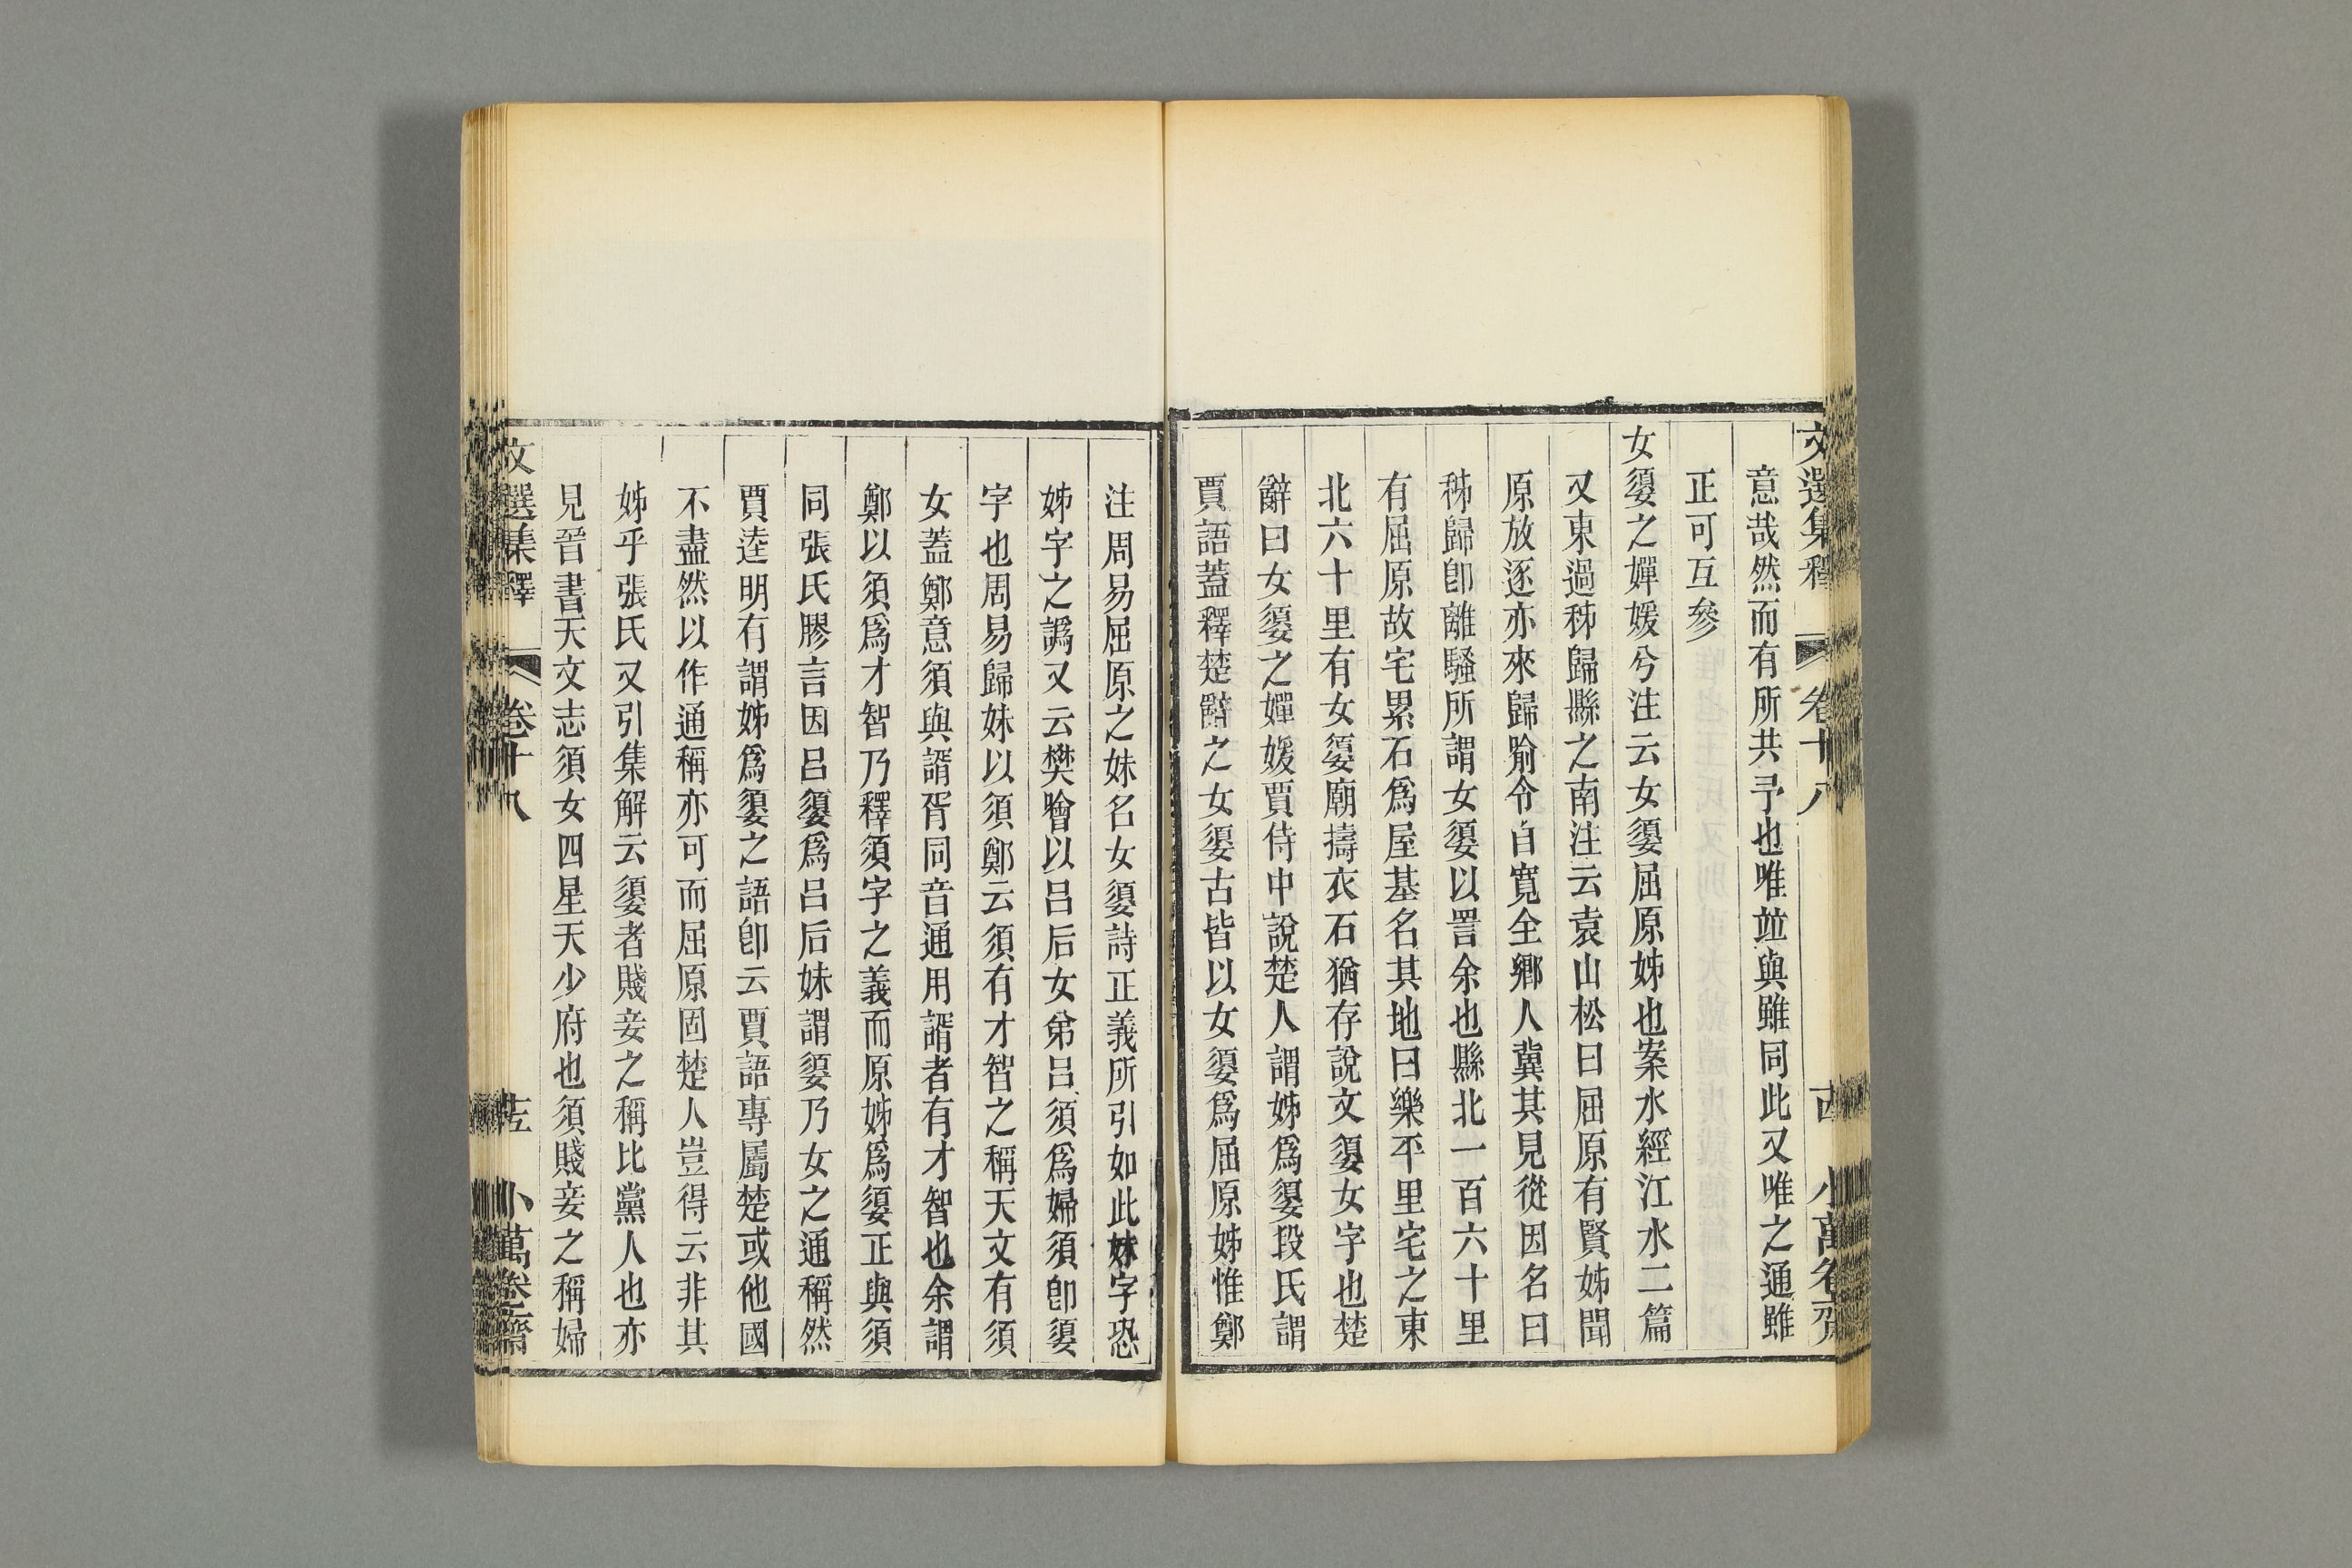 文選集釋 卷十八 古 小萬卷齋
意哉然而有所共予也唯竝與雖同此又唯之通雖
正可互參
女嬃之嬋媛兮注云女嬃屈原姊也案水經江水二篇
又東過秭歸縣之南注云袁山松曰屈原有賢姊聞
原放逐亦來歸喻令自寬全鄉人冀其見從因名曰
秭歸卽離騷所謂女嬃以詈余也縣北一百六十里
有屈原故宅累石爲屋基名其地曰樂平里宅之東
北六十里有女嬃廟擣衣石猶存說文嬃女字也楚
辭曰女嬃之嬋媛賈侍中說楚人謂姊爲嬃段氏謂
賈語蓋釋楚辭之女嬃古皆以女嬃爲屈原姊惟鄭
注周易屈原之妹名女嬃詩正義所引如此妹字恐
姊字之譌又云樊噲以呂后女弟呂須爲婦須卽嬃
字也周易歸妹以須鄭云須有才智之稱天文有須
女蓋鄭意須與諝胥同音通用諝者有才智也余謂
鄭以須爲才智乃釋須字之義而原姊爲嬃正與須
同張氏膠言因呂嬃爲呂后妹謂嬃乃女之通稱然
賈逵明有謂姊爲嬃之語卽云賈語專屬楚或他國
不盡然以作通稱亦可而屈原固楚人豈得云非其
姊乎張氏又引集解云嬃者賤妾之稱比黨人也亦
見晉書天文志須女四星天少府也須賤妾之稱婦
文選集釋 卷十八 小萬卷齋